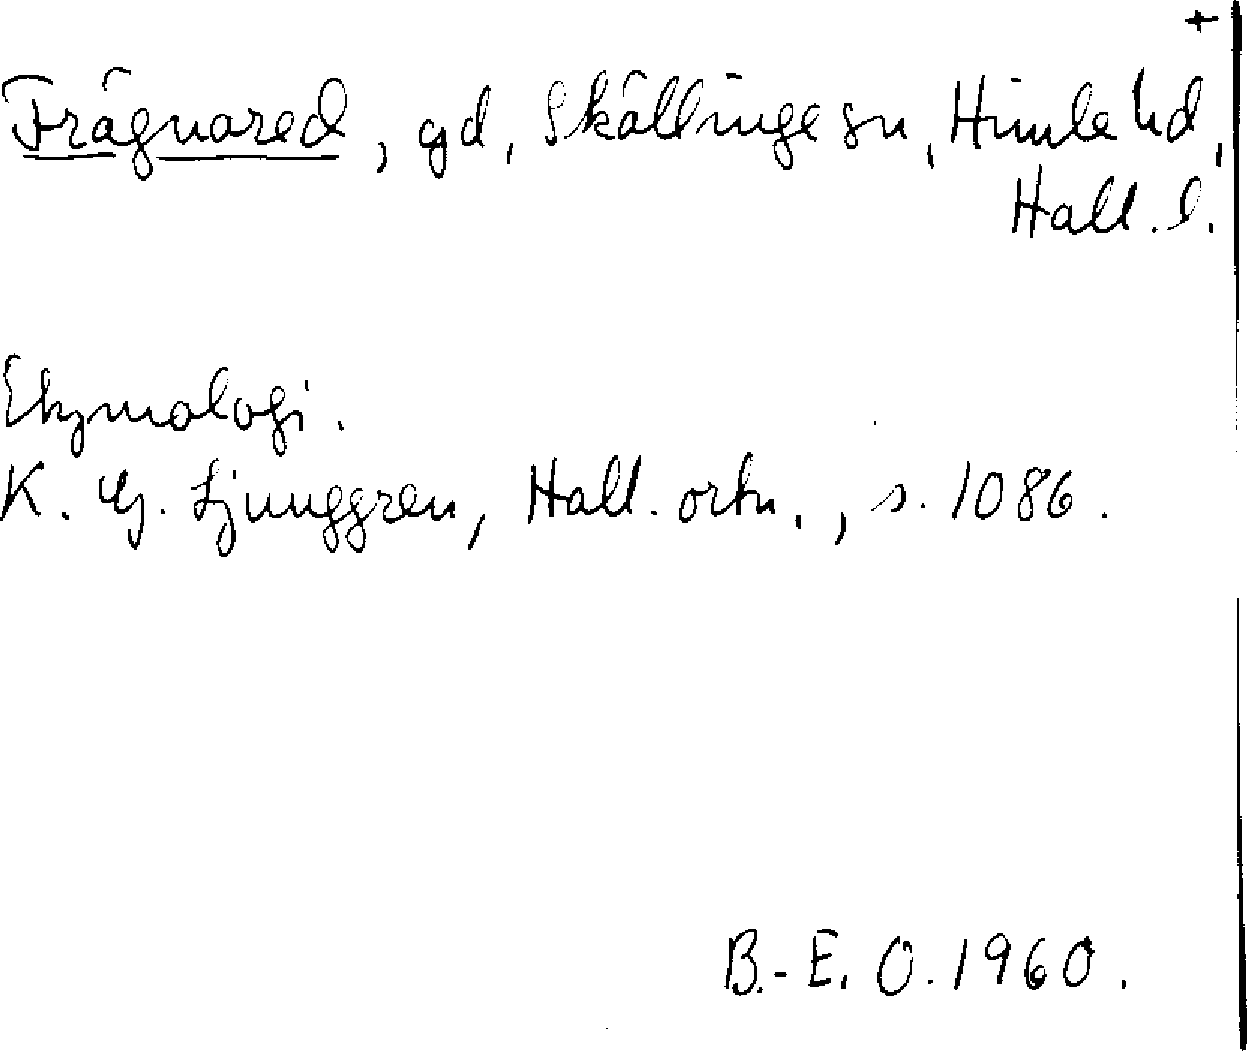 +
Frägnared, gd, Skällinge sn, Himle hd,
Hall. l.
Etymologi.
K. G. Ljunggren, Hall. ortn., s. 1086.
B.-E. O. 1960.